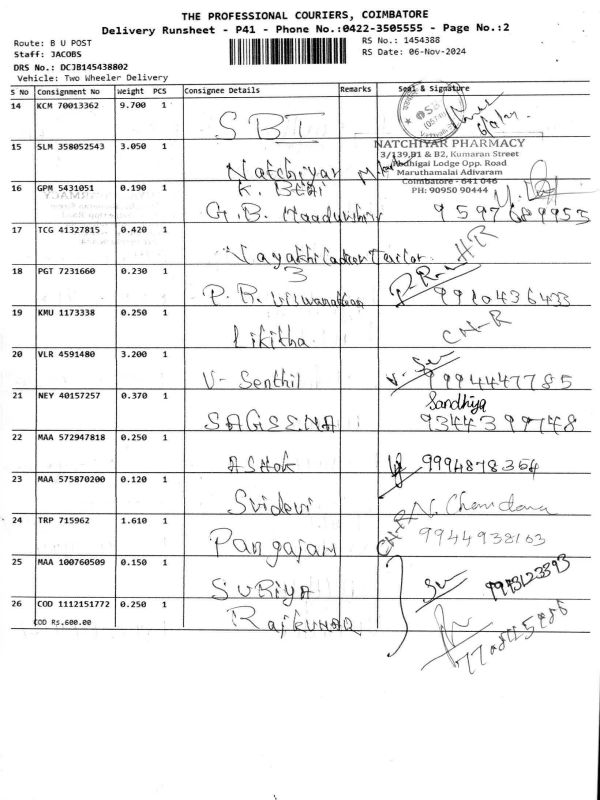 THE PROFESSIONAL COURIERS, COIMBATORE
Delivery Runsheet - P41 - Phone No.:0422-3505555 - Page No.:2
Route: B U POST
RS No.: 1454388
Staff: JACOBS
RS Date: 06-Nov-2024
DRS No.: DCJB145438802
Vehicle: Two Wheeler Delivery
S No Consignment No Weight PCS Consignee Details Remarks Seal & Signature
14 KCM 70013362 9.700 1
SBI
15 SLM 358052543 3.050 1
NATCHIYAR PHARMACY
3/139,B1 & B2, Kumaran Street
Padhigai Lodge Opp. Road
Maruthamalai Adivaram
Coimbatore - 641 046
PH: 90950 90444
Natchiyar
16 GPM 5431051 0.190 1
K.
G.B.
17 TCG 41327815 0.420 1
Tailor
18 PGT 7231660 0.230 1
3
P.B. Viswanathan 9910436433
19 KMU 1173338 0.250 1
Likitha CH-R
20 VLR 4591480 3.200 1
V- Senthil 9994447785
21 NEY 40157257 0.370 1
Sandhiya
SAGEENA 9344399748
22 MAA 572947818 0.250 1
ASHOK 9994878354
23 MAA 575870200 0.120 1
Sridevi
24 TRP 715962 1.610 1
Pangajam 9944938163
25 MAA 100760509 0.150 1
SURIYA
26 COD 1112151772 0.250 1
COD Rs.600.00
Rajkumar